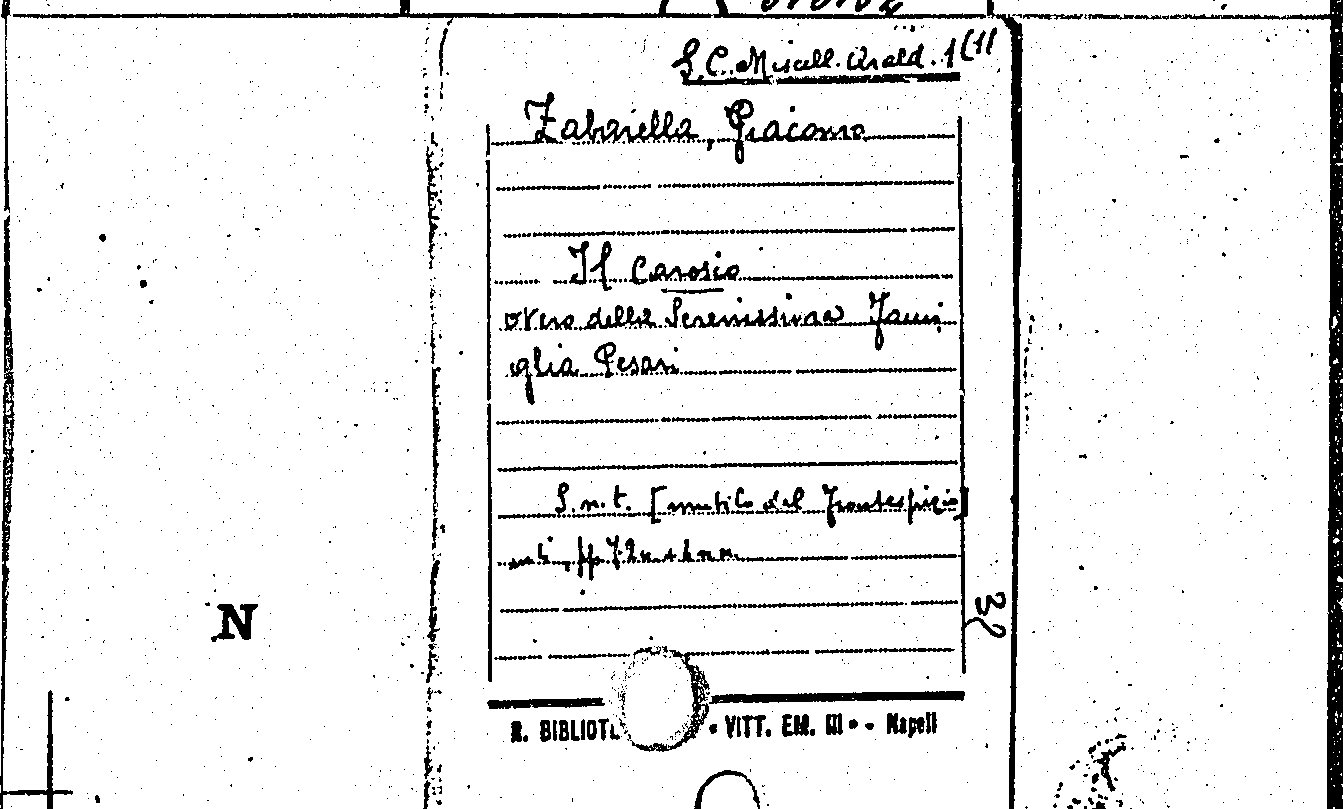 S.C. Miscell. Arald. 1(11
Zabarella, Giacomo
Il Carosio
overo della Serenissima Fami
glia Pesari
S.n.t. [mutilo del Frontespizio]
in 4°, pp.
38
N
R. BIBLIOTE VITT. EM. III • - Napoli